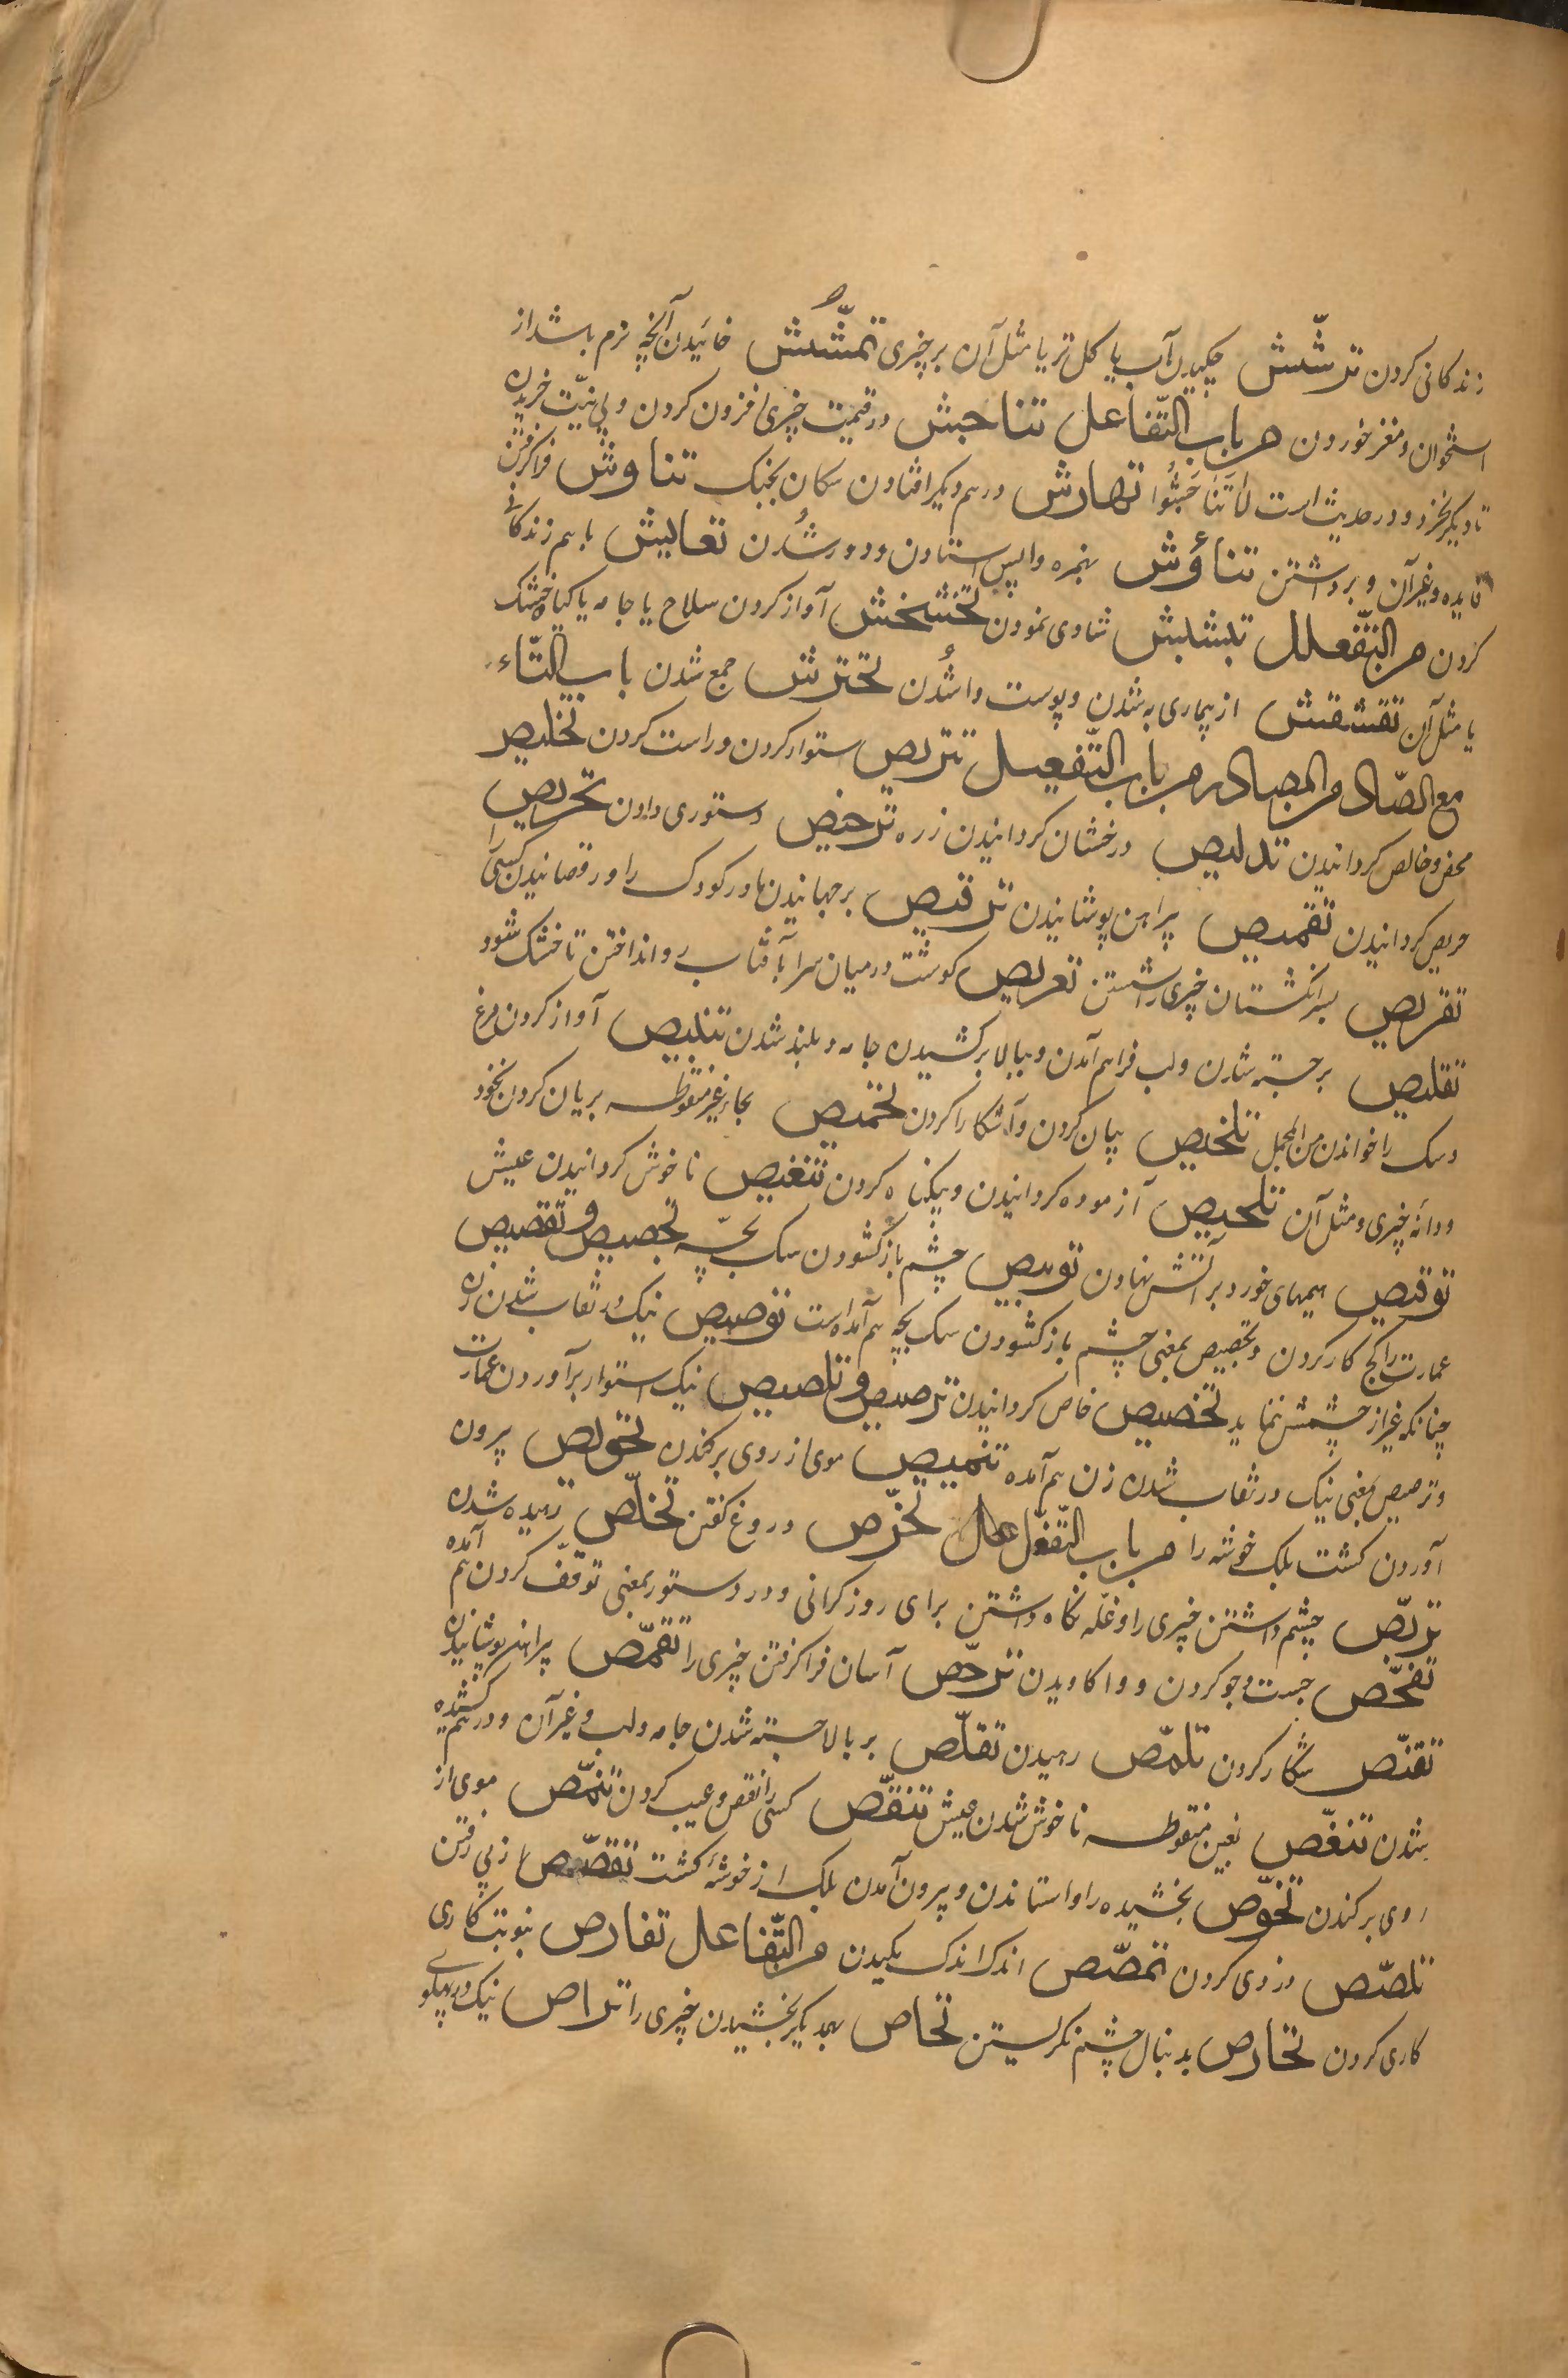 زندکانی کردن ترشّش چکیدن آب یا کل تر یا مثل آن بر چیزی تمشّش خائیدن آنچه نرم باشد از
استخوان و مغز خوردن من باب التّفاعل تناجش در قیمت چیزی افزون کردن و بی نیّت خریدن
تا دیکر بخرد و در حدیث است لاتَنَاجَشُوا تهارش در هم دیکر افتادن سکان بجنک تناوش فرا کرفتن
فایده و غیر آن و برداشتن تناؤش بهمزه واپس استادن و دور شُدن تعایش با هم زندکانی
کردن من التّفعلل تبشبش شادی نمودن تخشخش آواز کردن سلاح یا جامه یا کیاه خشک
یا مثل آن تقشقش از بیماری به شدن و پوست وا شُدن تحترش جمع شدن باب التّاء
مع الصّاد من المصادر من باب التّفعیل تتریص ستوار کردن و راست کردن تخلیص
محض و خالص کردانیدن تدلیص درخشان کردانیدن زره ترخیص دستوری دادن تحریص
حریص کردانیدن تقمیص پیراهن پوشانیدن ترقیص برجهانیدن مادر کودک را و رقصانیدن کسی را
تقریص بسر انکشتان چیزی را شستن تعریص کوشت در میان سرا بآفتاب رو انداختن تا خشک شود
تقلیص برجسته شدن و لب فراهم آمدن و ببالا بر کشیدن جامه و بلند شدن تنبیص آواز کردن مرغ
و سک را خواندن من المجمل تلخیص بیان کردن و آشکارا کردن تحمیص بحاء غیر منقوطه بریان کردن نخود
و دانه چیزی و مثل آن تلحیص آزموده کردانیدن و بیکناه کردن تنغیص ناخوش کردانیدن عیش
توقیص هیمهای خورد بر آتش نهادن توبیص چشم باز کشودن سک بچّه تجصیص و تقصیص
عمارت را کج کار کردن و تجصیص بمعنی چشم باز کشودن سک بچّه هم آمده است توصیص نیک در نقاب شدن زن
چنانکه غیر از چشمش ننماید تخصیص خاص کردانیدن ترصیص و تلصیص نیک استوار برآوردن عمارت
و ترصیص بمعنی نیک در نقاب شدن زن هم آمده تنمیص موی از روی برکندن تخویص بیرون
آوردن کشت بلک خوشه را من باب التّفعّل تخرّص دروغ کفتن تخلّص رهیده شدن
تربّص چشم داشتن چیزی را و غلّه نکاه داشتن برای روز کرانی و در دستور بمعنی توقّف کردن هم آمده
تفحّص جست و جو کردن و وا کاویدن ترخّص آسان فرا کرفتن چیزی را تقمّص پیراهن پوشانیدن
تقنّص شکار کردن تلمّص رهیدن تقلّص بر بالا جسته شدن جامه و لب و غیر آن و در هم کشیده
شدن تنغّص بغین منقوطه ناخوش شدن عیش تنقّص کسی را نقص و عیب کردن تنمّص موی از
روی برکندن تخوّص بخشیده را واستاندن و بیرون آمدن بلک از خوشهٔ کشت تقصّص از پی رفتن
تلصّص دزدی کردن تمصّص اندک اندک مکیدن من التّفاعل تفارص بنوبت کاری
کاری کردن تخاوص بدنبال چشم نکریستن تحاص بهمدیکر بخشیدن چیزی را تراص نیک در پهلوی